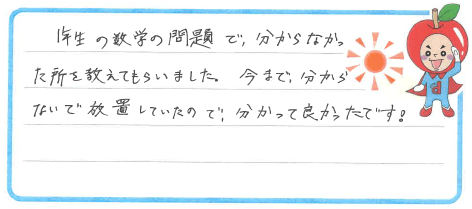 1年生の数学の問題で、分からなかっ
た所を教えてもらいました。今まで、分から
ないで放置していたので、分かって良かったです!
d